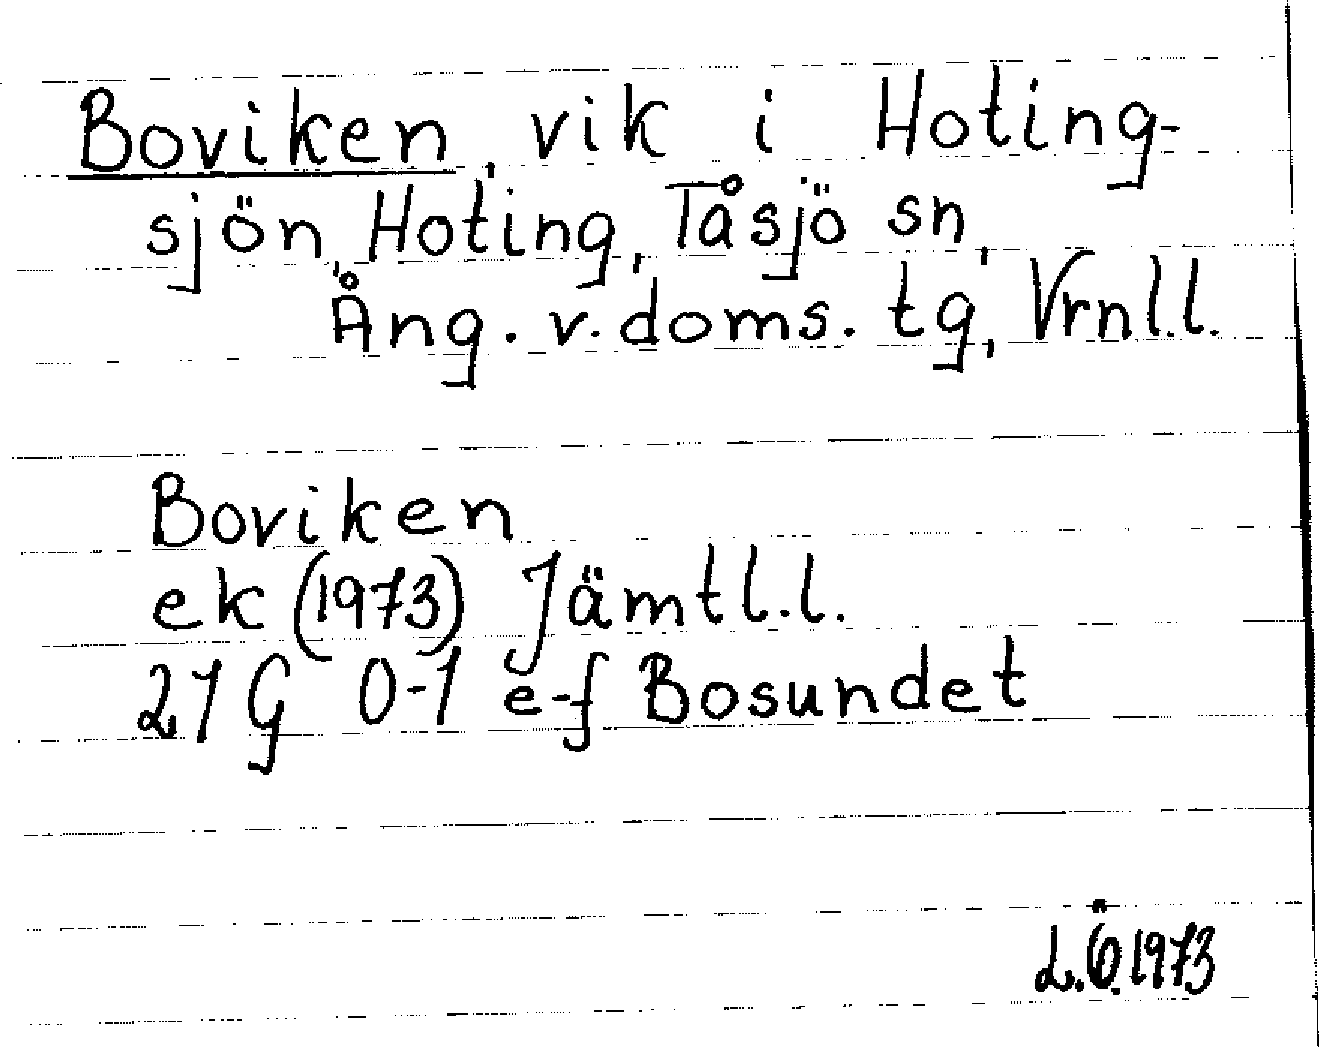 Boviken, vik i Hoting-
sjön, Hoting, Tåsjö sn,
Ång. v. doms. tg, Vrnl.l.
Boviken
ek (1973) Jämtl.l.
21 G 0-1 e-f Bosundet
L.Ö. 1973